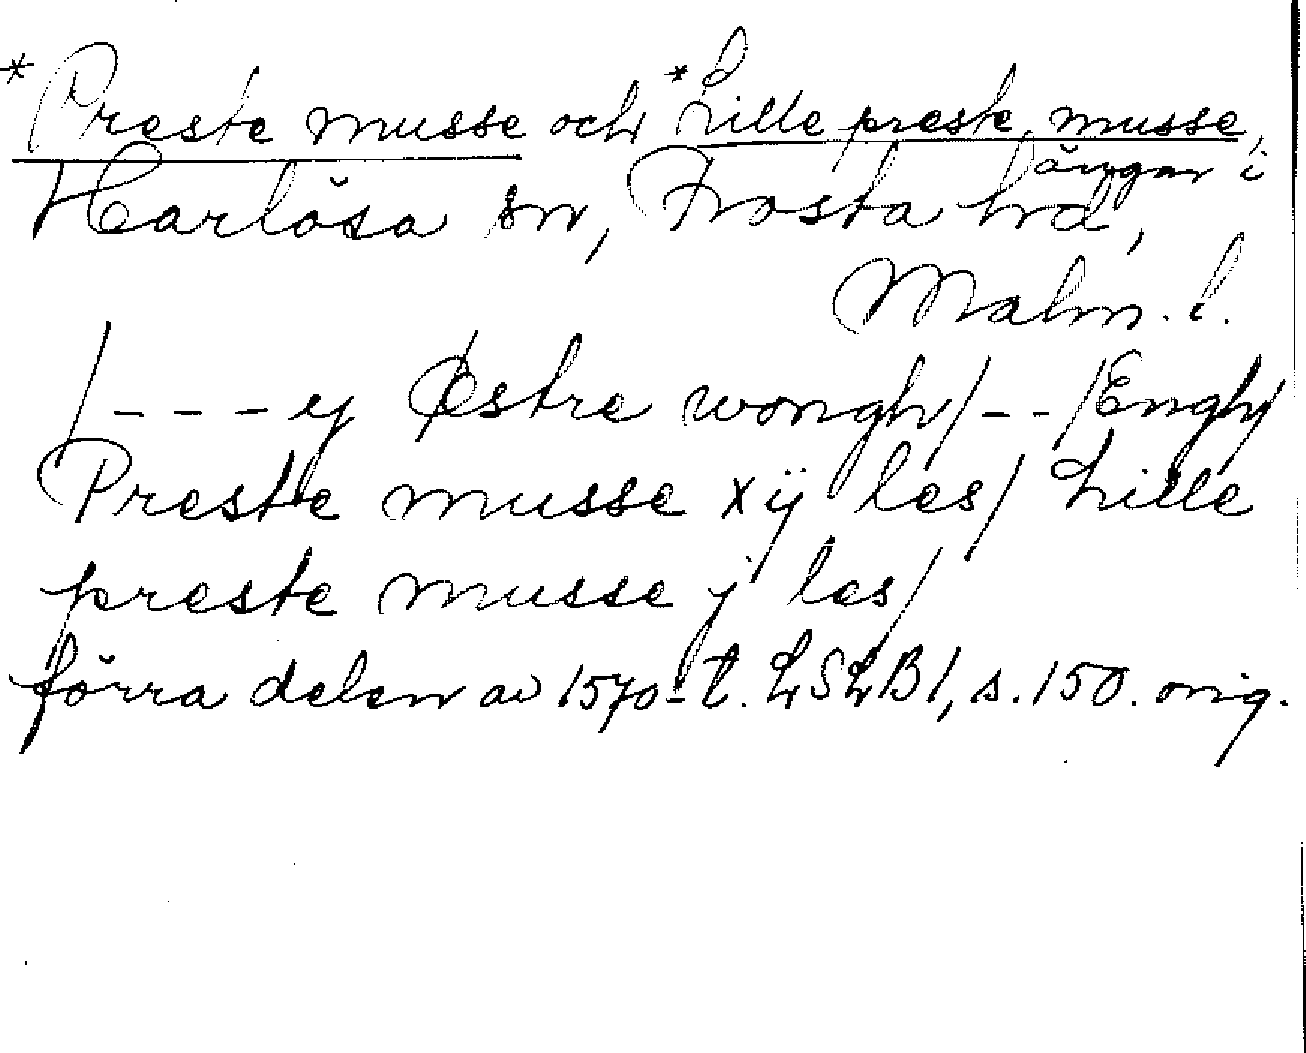 *Preste musse och *Lille preste musse,
ängar i
Harlösa sn, Frosta hd,
Malm. l.
/- - - - ij Østre wongh/- - /Engh/
Preste musse xij les/ Lille
preste musse j les/
förra delen av 1570-t. LSLB1, s.150. orig.